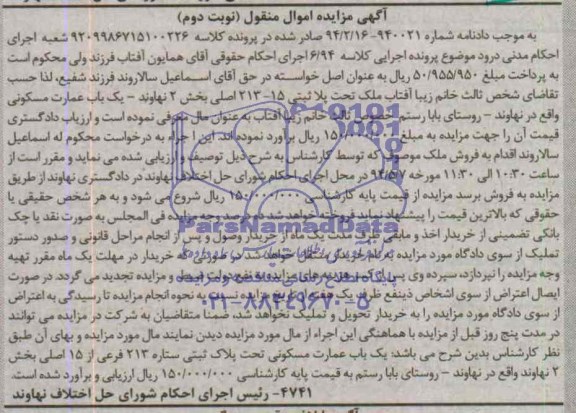 آگهی مزایده اموال منقول (نوبت دوم)
به موجب دادنامه شماره ۹۴۰۰۲۱-۹۴/۲/۱۶ صادر شده در پرونده کلاسه ۹۲۰۹۹۸۶۷۱۵۱۰۰۲۲۶ شعبه اجرای
احکام مدنی درود موضوع پرونده اجرایی کلاسه ۶/۹۴ اجرای احکام حقوقی آقای همایون آفتاب فرزند ولی محکوم است
به پرداخت مبلغ ۵۰/۹۵۵/۹۵۰ ریال به عنوان اصل خواسته در حق آقای اسماعیل سالاروند فرزند شفیع، لذا حسب
تقاضای شخص ثالث خانم زیبا آفتاب ملک تحت پلا ثبتی ۱۵-۲۱۳ اصلی بخش ۲ نهاوند - یک باب عمارت مسکونی
واقع در نهاوند - روستای بابا رستم خصوص ثالث خانم زیبا آفتاب به عنوان مال معرفی نموده است و ارزیاب دادگستری
قیمت آن را جهت مزایده به مبلغ ریال برآورد نموده‌اند. این اجراء به درخواست محکوم له اسماعیل
سالاروند اقدام به فروش ملک موصوف که توسط کارشناس به شرح ذیل توصیف و ارزیابی شده می نماید و مقرر است از
ساعت ۱۰:۳۰ الی ۱۱:۳۰ مورخه در محل اجرای احکام شورای حل اختلاف نهاوند در دادگستری نهاوند از طریق
مزایده به فروش برسد مزایده از قیمت پایه کارشناسی ۱۵۰/۰۰۰/۰۰۰ ریال شروع می شود و به هر شخص حقیقی یا
حقوقی که بالاترین قیمت را پیشنهاد نماید فروخته خواهد شد ده درصد وجه مزایده فی المجلس به صورت نقد یا چک
بانکی تضمینی از خریدار اخذ و مابقی ظرف مدت یک ماه از خریدار وصول و پس از انجام مراحل قانونی و صدور دستور
تملیک از سوی دادگاه مورد مزایده به نام خریدار منتقل خواهد شد در صورتی که خریدار در مهلت یک ماه مقرر تهیه
وجه مزایده را نپردازد، سپرده وی پس از کسر هزینه های مزایده به نفع دولت ضبط و مزایده تجدید می گردد. در صورت
ایصال اعتراض از سوی اشخاص ذینفع ظرف یک نحوه انجام مزایده تا رسیدگی به اعتراض
از سوی دادگاه مورد مزایده را به خریدار تحویل و تملیک نخواهد شد، ضمنا متقاضیان به شرکت در مزایده می توانند
در مدت پنج روز قبل از مزایده با هماهنگی این اجراء از مال مورد مزایده دیدن نمایند مال مورد مزایده و بهای آن طبق
نظر کارشناس بدین شرح می باشد: یک باب عمارت مسکونی تحت پلاک ثبتی ستاره ۲۱۳ فرعی از ۱۵ اصلی بخش
۲ نهاوند واقع در نهاوند - روستای بابا رستم به قیمت پایه کارشناسی ۱۵۰/۰۰۰/۰۰۰ ریال ارزیابی و برآورد شده است.
۴۷۴۱- رئیس اجرای احکام شورای حل اختلاف نهاوند
ParsNamadData
پایگاه اطلاع رسانی مناقصه و مزایده
۰۲۱-۸۸۳۴۹۶۷۰-۵